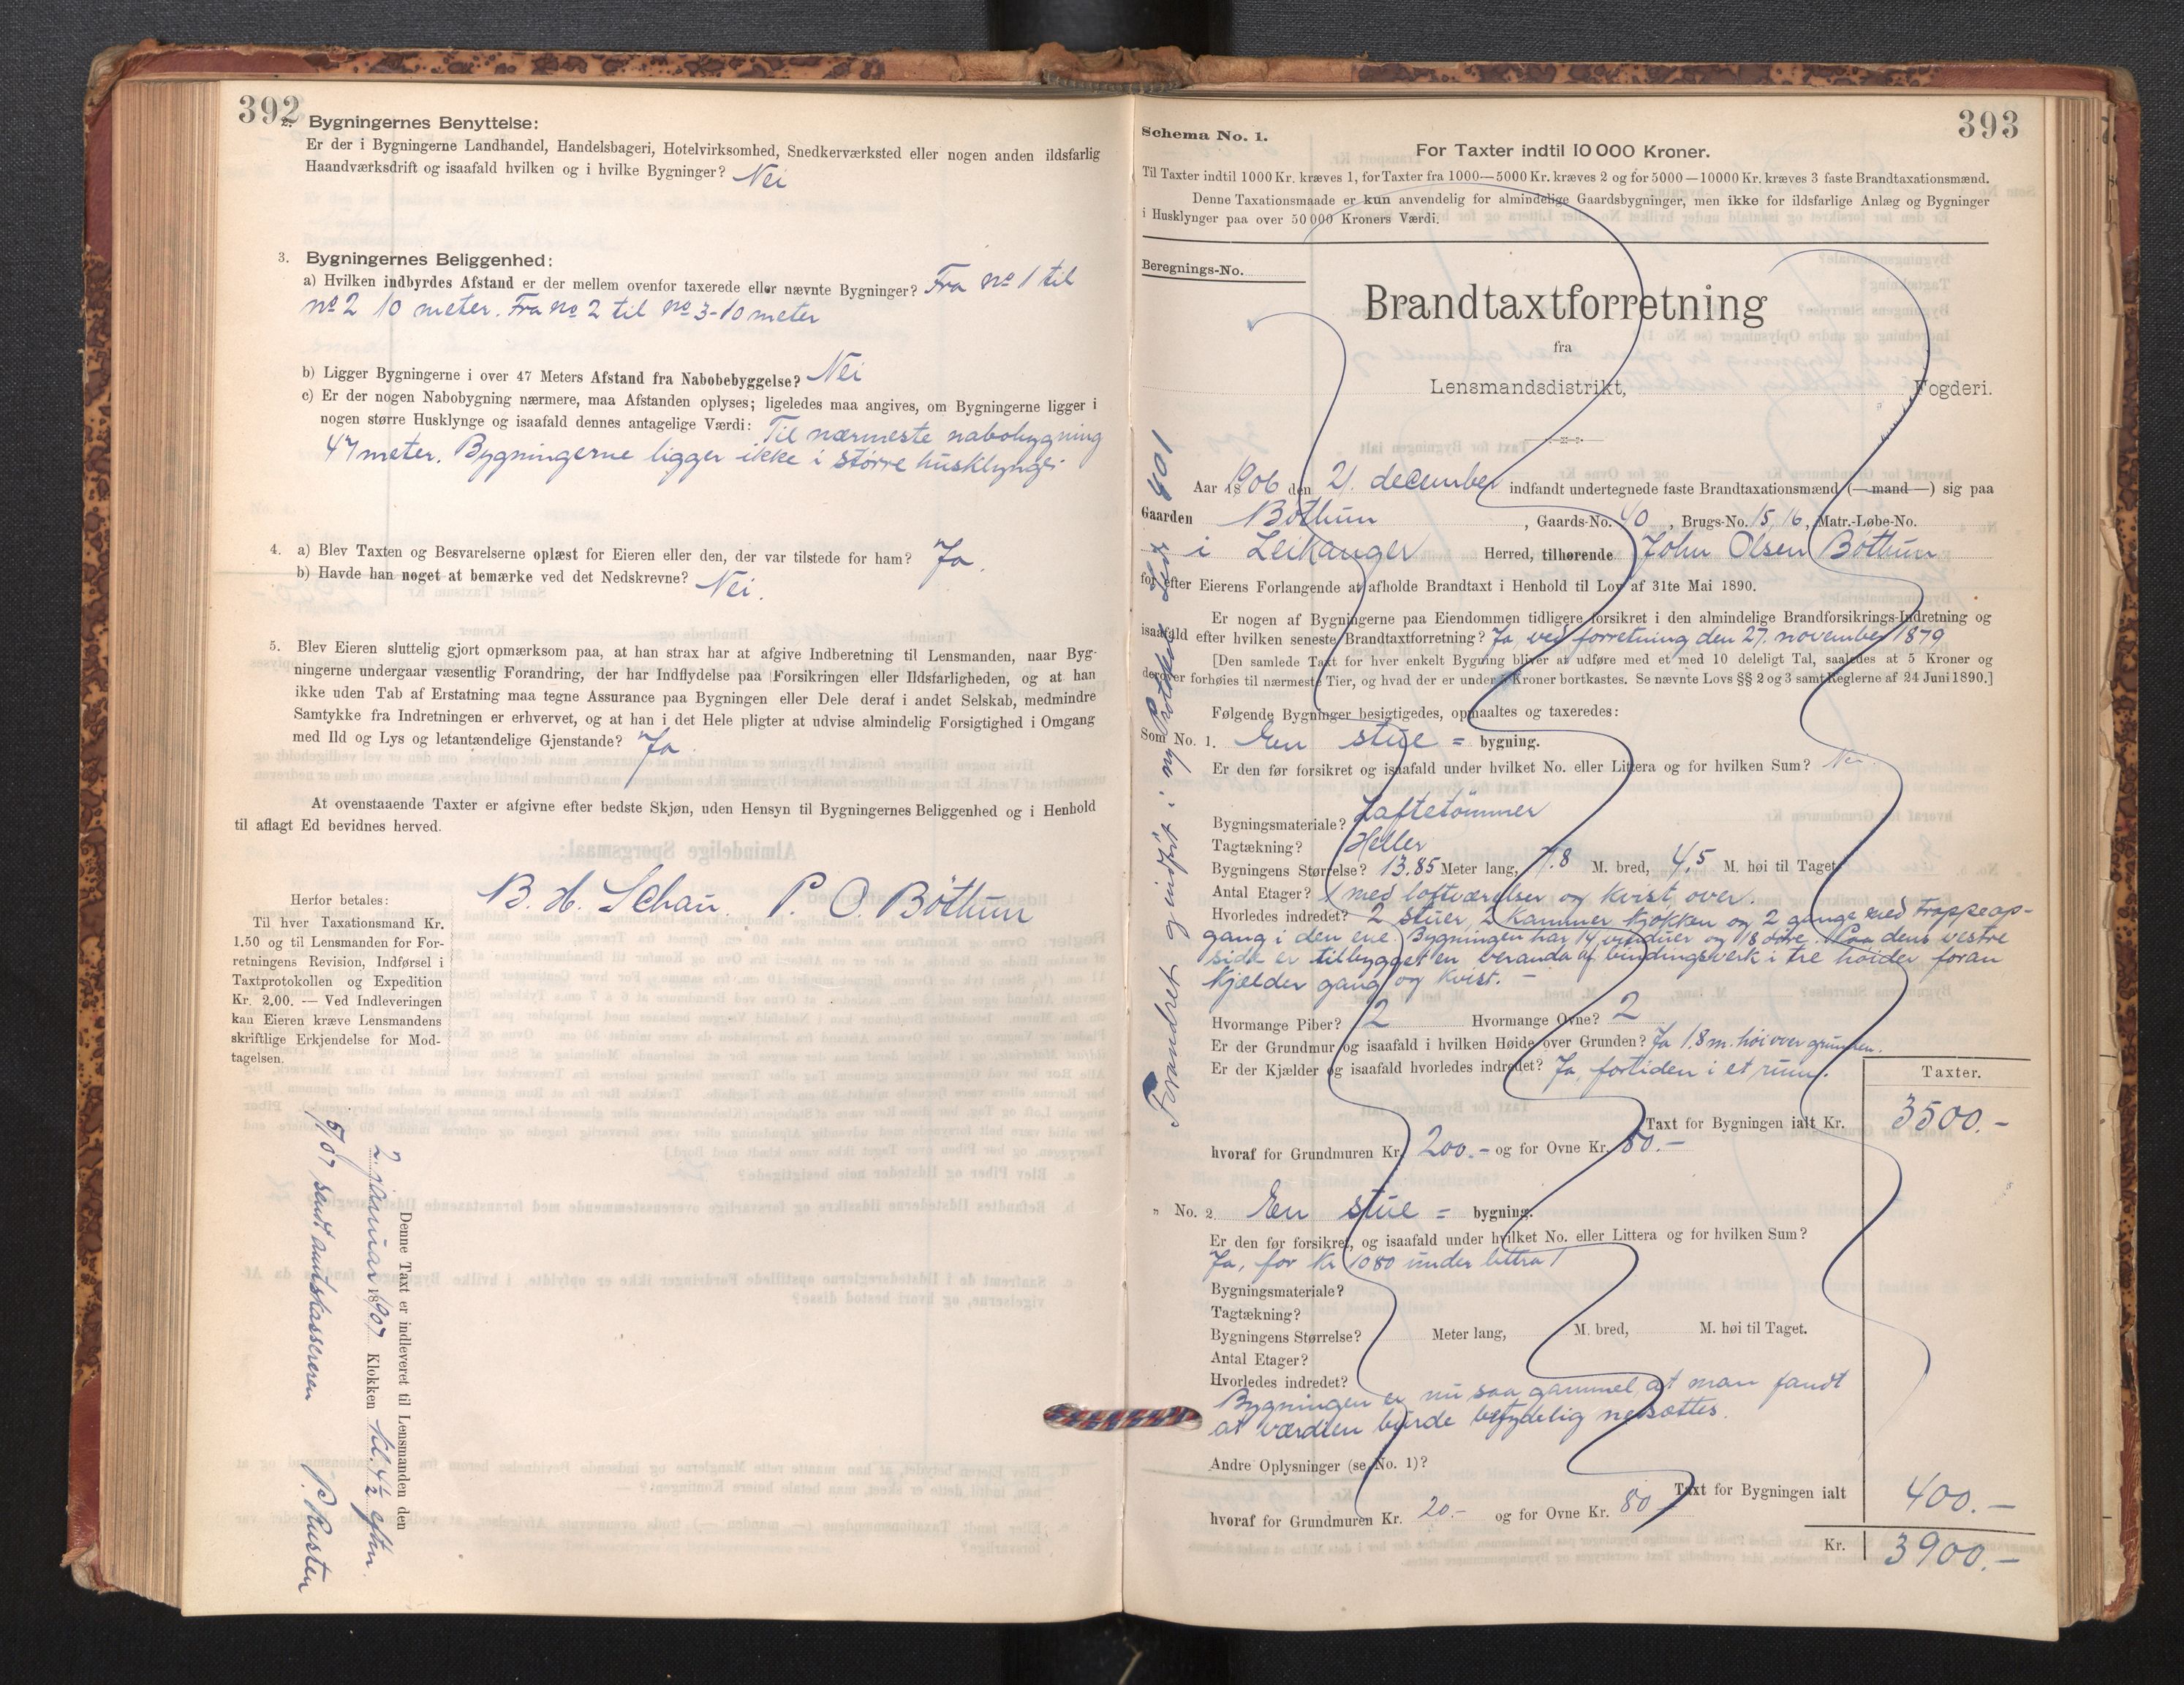 392
2. Bygningernes Benyttelse:
Er der i Bygningerne Landhandel, Handelsbageri, Hotelvirksomhed, Snedkerværksted eller nogen anden ildsfarlig
Haandværksdrift og isaafald hvilken og i hvilke Bygninger? Nei
3. Bygningernes Beliggenhed:
a) Hvilken indbyrdes Afstand er der mellem ovenfor taxerede eller nævnte Bygninger? Fra no 1 til
no 2 10 meter. Fra no 2 til no 3 - 10 meter
b) Ligger Bygningerne i over 47 Meters Afstand fra Nabobebyggelse? Nei
c) Er der nogen Nabobygning nærmere, maa Afstanden oplyses; ligeledes maa angives, om Bygningerne ligger i
nogen større Husklynge og isaafald dennes antagelige Værdi: Til nærmeste nabobygning
47 meter. Bygningerne ligger ikke i større husklynge.
4. a) Blev Taxten og Besvarelserne oplæst for Eieren eller den, der var tilstede for ham? Ja.
b) Havde han noget at bemærke ved det Nedskrevne? Nei.
5. Blev Eieren sluttelig gjort opmærksom paa, at han strax har at afgive Indberetning til Lensmanden, naar Byg-
ningerne undergaar væsentlig Forandring, der har Indflydelse paa Forsikringen eller Ildsfarligheden, og at han
ikke uden Tab af Erstatning maa tegne Assurance paa Bygningen eller Dele deraf i andet Selskab, medmindre
Samtykke fra Indretningen er erhvervet, og at han i det Hele pligter at udvise almindelig Forsigtighed i Omgang
med Ild og Lys og letantændelige Gjenstande? Ja
At ovenstaaende Taxter er afgivne efter bedste Skjøn, uden Hensyn til Bygningernes Beliggenhed og i Henhold
til aflagt Ed bevidnes herved.
B. H. Schau. P. O. Böthun
Herfor betales:
Til hver Taxationsmand Kr.
1.50 og til Lensmanden for For-
retningens Revision, Indførsel i
Taxtprotokollen og Expedition
Kr. 2.00. — Ved Indleveringen
kan Eieren kræve Lensmandens
skriftlige Erkjendelse for Mod-
tagelsen.
Denne Taxt er indleveret til Lensmanden den
2 januar 1907 Klokken kl. 4½ eftm.
5/07 sendt amtskassereren P. Rusten
393
Schema No. 1.
For Taxter indtil 10 000 Kroner.
Til Taxter indtil 1000 Kr. kræves 1, for Taxter fra 1000—5000 Kr. kræves 2 og for 5000—10000 Kr. kræves 3 faste Brandtaxationsmænd.
Denne Taxationsmaade er kun anvendelig for almindelige Gaardsbygninger, men ikke for ildsfarlige Anlæg og Bygninger
i Husklynger paa over 50 000 Kroners Værdi.
Beregnings-No.
Brandtaxtforretning
fra
Lensmandsdistrikt, Fogderi.
Aar 1906 den 21. december indfandt undertegnede faste Brandtaxationsmænd (—mand—) sig paa
Gaarden Böthun, Gaards-No. 40, Brugs-No. 15, 16, Matr.-Løbe-No.
i Leikanger Herred, tilhørende John Olsen Böthun
for efter Eierens Forlangende at afholde Brandtaxt i Henhold til Lov af 31te Mai 1890.
Er nogen af Bygningerne paa Eiendommen tidligere forsikret i den almindelige Brandforsikrings-Indretning og
isaafald efter hvilken seneste Brandtaxtforretning? Ja, ved forretning den 27. november 1879
[Den samlede Taxt for hver enkelt Bygning bliver at udføre med et med 10 deleligt Tal, saaledes at 5 Kroner og
derover forhøies til nærmeste Tier, og hvad der er under 5 Kroner bortkastes. Se nævnte Lovs §§ 2 og 3 samt Reglerne af 24 Juni 1890.]
Følgende Bygninger besigtigedes, opmaaltes og taxeredes:
Som No. 1. En stue = bygning.
Er den før forsikret og isaafald under hvilket No. eller Littera og for hvilken Sum? Nei
Bygningsmateriale? Laftetömmer
Tagtækning? Heller
Bygningens Størrelse? 13.85 Meter lang, 7.8 M. bred, 4,5 M. høi til Taget
Antal Etager? 1 med loftværelser og kvist over.
Hvorledes indredet? 2 stuer, 2 kammer kjøkken og 2 gange med Trappeop-
gang i den ene. Bygningen har 14 vinduer og 18 döre. Paa dens vestre
side er tilbygget en veranda af bindingsverk i tre höider foran
kjælder gang og kvist. —
Hvormange Piber? 2 Hvormange Ovne? 2
Er der Grundmur og isaafald i hvilken Høide over Grunden? Ja 1.8 m. höi over grunden.
Er der Kjælder og isaafald hvorledes indredet? Ja, fortiden i et rum.
Taxter.
Taxt for Bygningen ialt Kr. 3500.—
hvoraf for Grundmuren Kr. 200.— og for Ovne Kr. 80.—
" No. 2 En stue = bygning.
Er den før forsikret, og isaafald under hvilket No. eller Littera og for hvilken Sum?
Ja, for kr 1080 under littra 1
Bygningsmateriale?
Tagtækning?
Bygningens Størrelse? Meter lang, M. bred, M. høi til Taget.
Antal Etager?
Hvorledes indredet?
Bygningen er nu saa gammel, at man fandt
at værdien burde betydelig nedsættes.
Andre Oplysninger (se No. 1)?
Taxt for Bygningen ialt 400.—
hvoraf for Grundmuren Kr. 20.— og for Ovne Kr. 80
Kr. 3900.—
Forandret og indført i ny Protokol 401